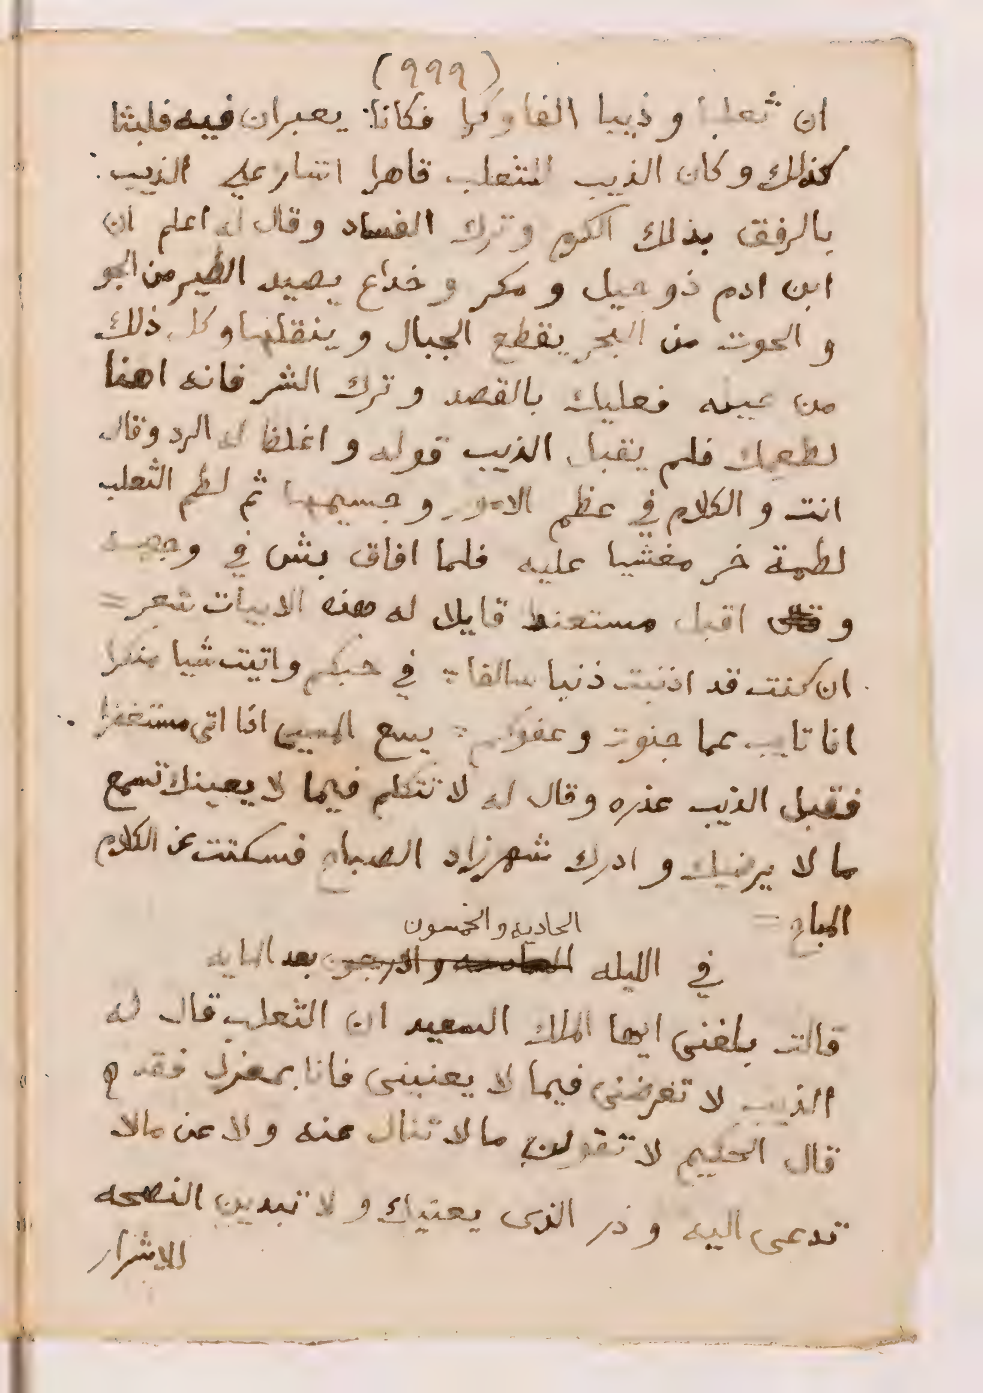 (٩٩٩)
ان ثعلبا و ذيبا الفا وكرا فكانا يعبران فيه فلبثا
كذلك وكان الذيب للثعلب قاهرا اشار علي الذيب
بالرفق بذلك الكرم وترك الفساد وقال له اعلم ان
ابن ادم ذو حيل و مكر و خداع يصيد الطير من الجو
و الحوت من البحر يقطع الجبال و ينقلها وكل ذلك
من حيله فعليك بالقصد و ترك الشر فانه اهنا
لطعمك فلم يقبل الذيب قوله و اغلظ له الرد وقال
انت و الكلام في عظم الامور و جسيمها ثم لطم الثعلب
لطمة خر مغشيا عليه فلما افاق بش في وجهه
و اقبل قايلا له هذه الابيات شعر =
ان كنت قد اذنبت ذنبا سالفا : في حبكم واتيت شيا منكرا
انا تايب عما جنوت و عفوكم : يسع المسيي اذا اتى مستغفرا
فقبل الذيب عذره وقال له لا تتكلم فيما لا يعينك تسمع
ما لا يرضيك و ادرك شهرزاد الصباح فسكتت عن الكلام
المباح =
الحاديه والخمسون
في الليله بعد المايه
قالت بلغني ايها الملك السعيد ان الثعلب قال له
الذيب لا تعرضني فيما لا يعنيني فانا بمعزل فقدح
قال الحكيم لا تقولن ما لا تنال عنه و لا عن مالا
تدعى اليه و ذر الذى يعنيك و لا تبدين النصحه
للاشرار